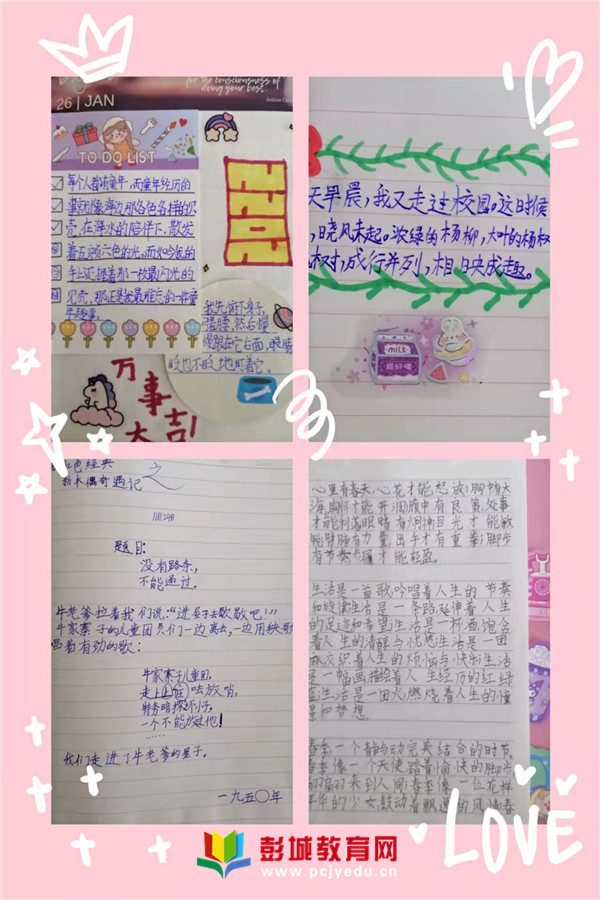 for the consciousness of
doing your best.
26 | JAN
TO DO LIST
每个人都有童年,而童年经历的
事就像海边那各色各样的贝
壳,在海水的陪伴下,散发
着五颜六色的光。而如今我的
手上还握着那一枚最闪光的
贝壳,那正是我最难忘的一件童
年趣事。
我先俯下身子,
慢慢跟在它后面,眼睛
眨也不眨地盯着它。
万事
大吉!
天早晨,我又走进校园。这时候
,晓风未起。浓绿的杨柳,大叶的杨
树,成行并列,相映成趣。
MILK
超好喝
色经典
木偶奇遇记之
题目:
没有路条,
不能通过。
牛老爹拉着我们说:“进屋子去歇歇吧!”
牛家寨子的儿童团员们一边离去,一边用秧歌
唱着有劲的歌:
牛家寨子儿童团,
走上岗位去放哨,
特务暗探坏小子,
一个不能放过他!
……
我们走进了牛老爹的屋子。
一九五〇年
心里有春天,心花才能怒放;胸中有大
海,胸怀才能开阔;腹中有良策,处事
才能利落;眼睛有炯神,目光才能敏
锐;臂膀有力量,出手才有重拳;脚步
有节奏,步履才能轻盈。
生活是一首歌,吟唱着人生的节奏
和旋律;生活是一条路,延伸着人生
的足迹和希望;生活是一杯酒,饱含
着人生的清醇与忧愁;生活是一团
麻,交织着人生的烦恼与快乐;生活
是一幅画,描绘着人生经历的红绿
蓝;生活是一团火,燃烧着人生的憧
憬和梦想。
春季,一个静与动完美结合的时节,
春季像一个天使,踏着愉快的脚步
来到人间;春季像一位花样
年华的少女,鼓动着飘逸的
LOVE
彭城教育网
www.pcjyedu.cn